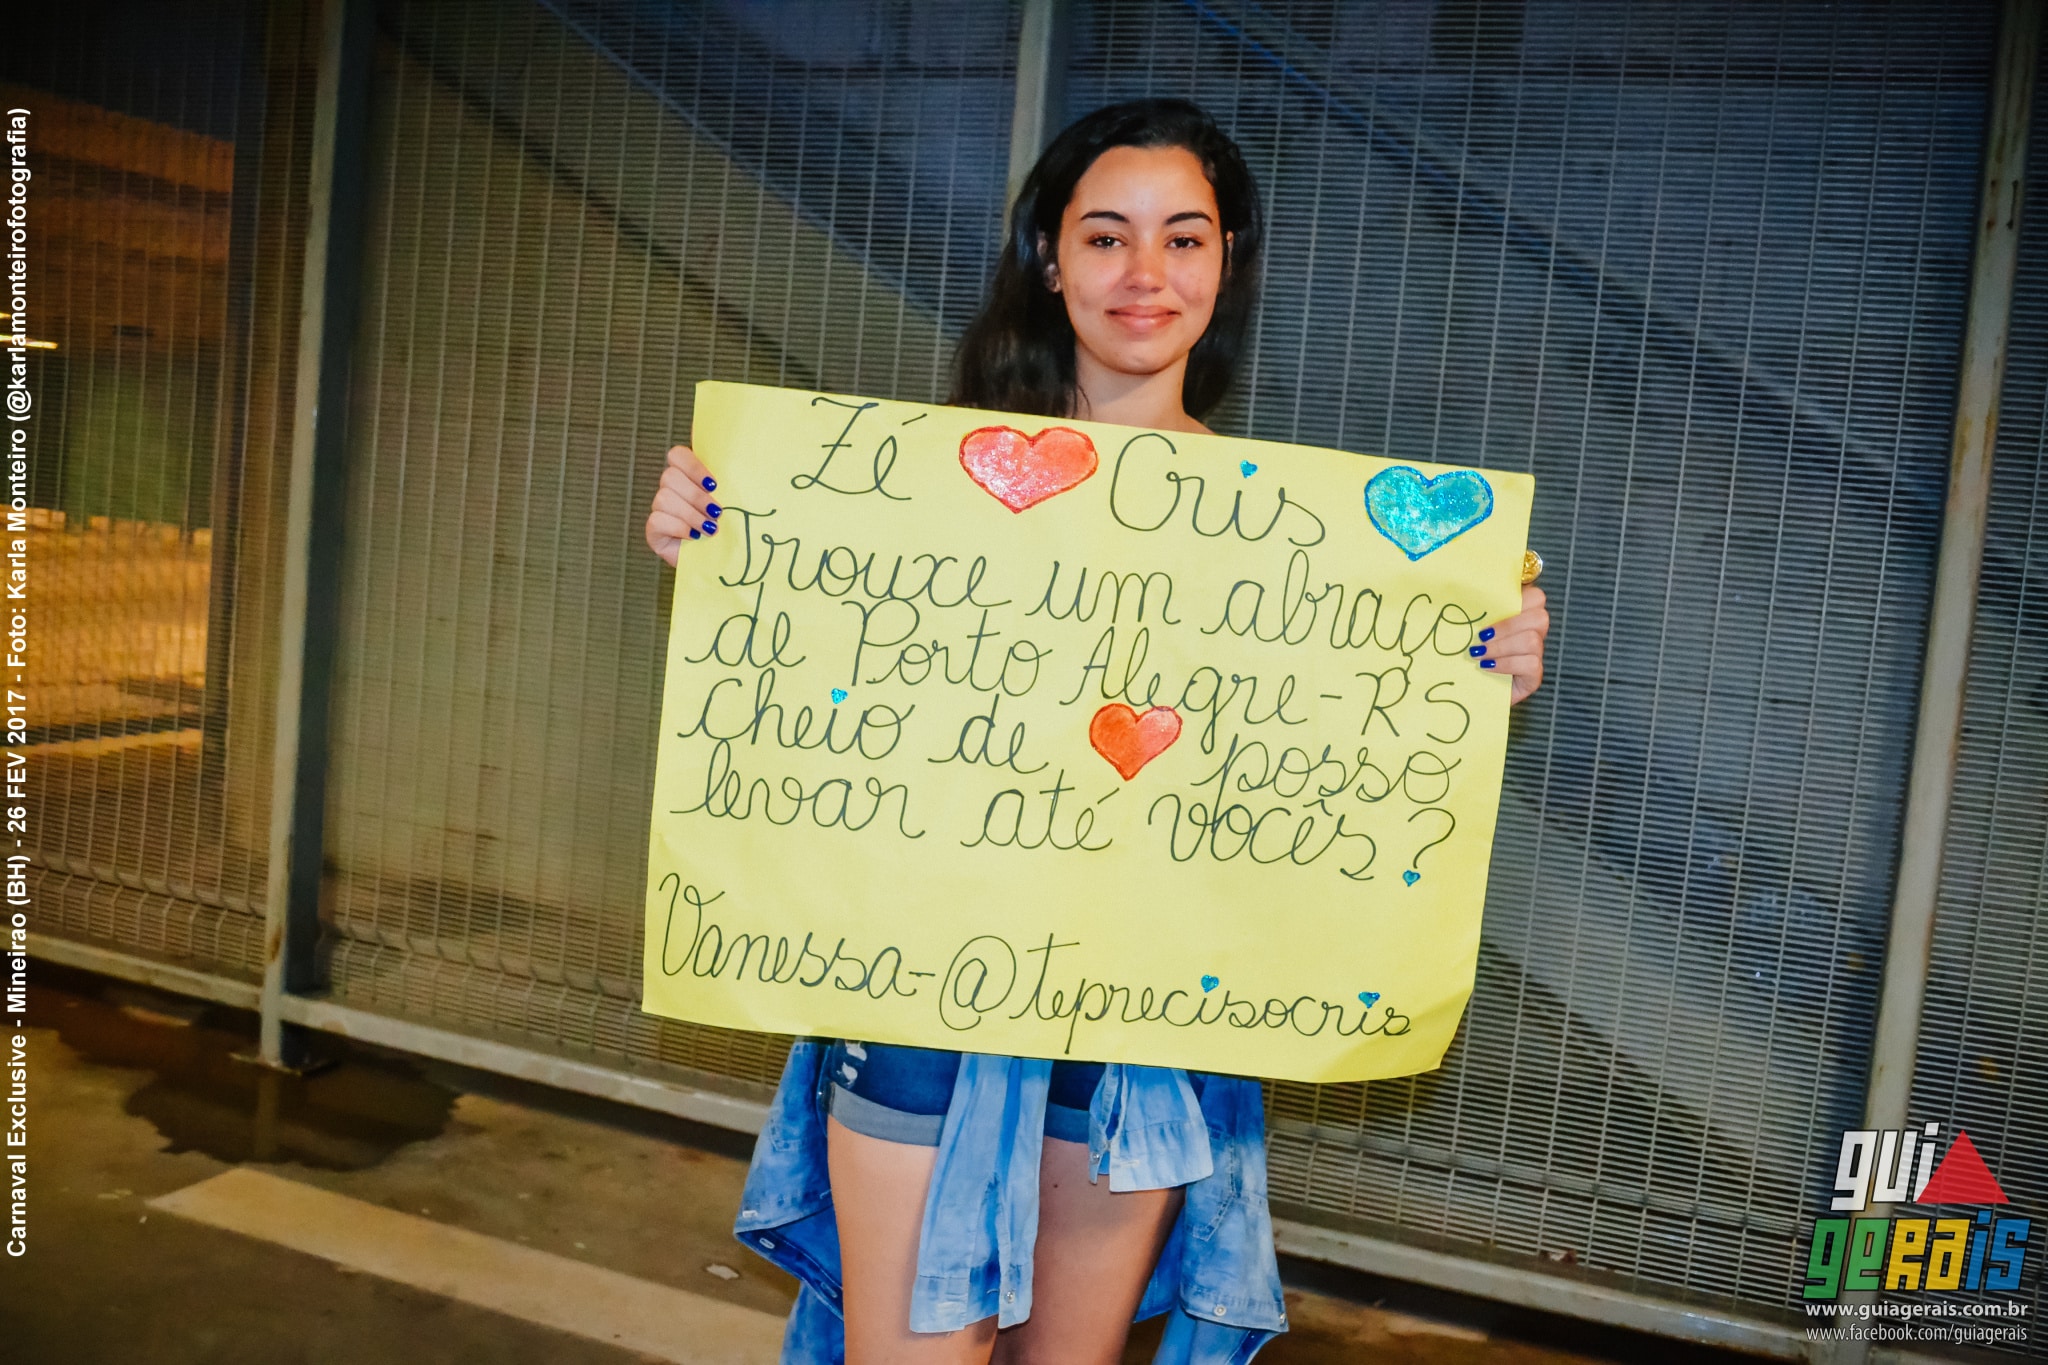 Zé Cris
Trouxe um abraço
de Porto Alegre-RS
cheio de posso
levar até vocês?
Vanessa-@teprecisocris
Carnaval Exclusive - Mineirao (BH) - 26 FEV 2017 - Foto: Karla Monteiro (@karlamonteirofotografia)
gui
gerais
www.guiagerais.com.br
www.facebook.com/guiagerais